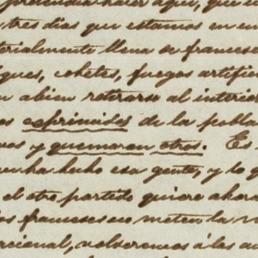 pretendia hacer aquí, que e
tres dias que estamos en en
terialmente llena de frances
iques, cohetes, fuegos artifici
n abino retirarse al interio
os esprimiles de la pobla
vos y quemaron otros. Es
un ha hecho esa gente, y lo q
el otro partido quiere ahora
los franceses en meten la n
rcional, volveremos á los au